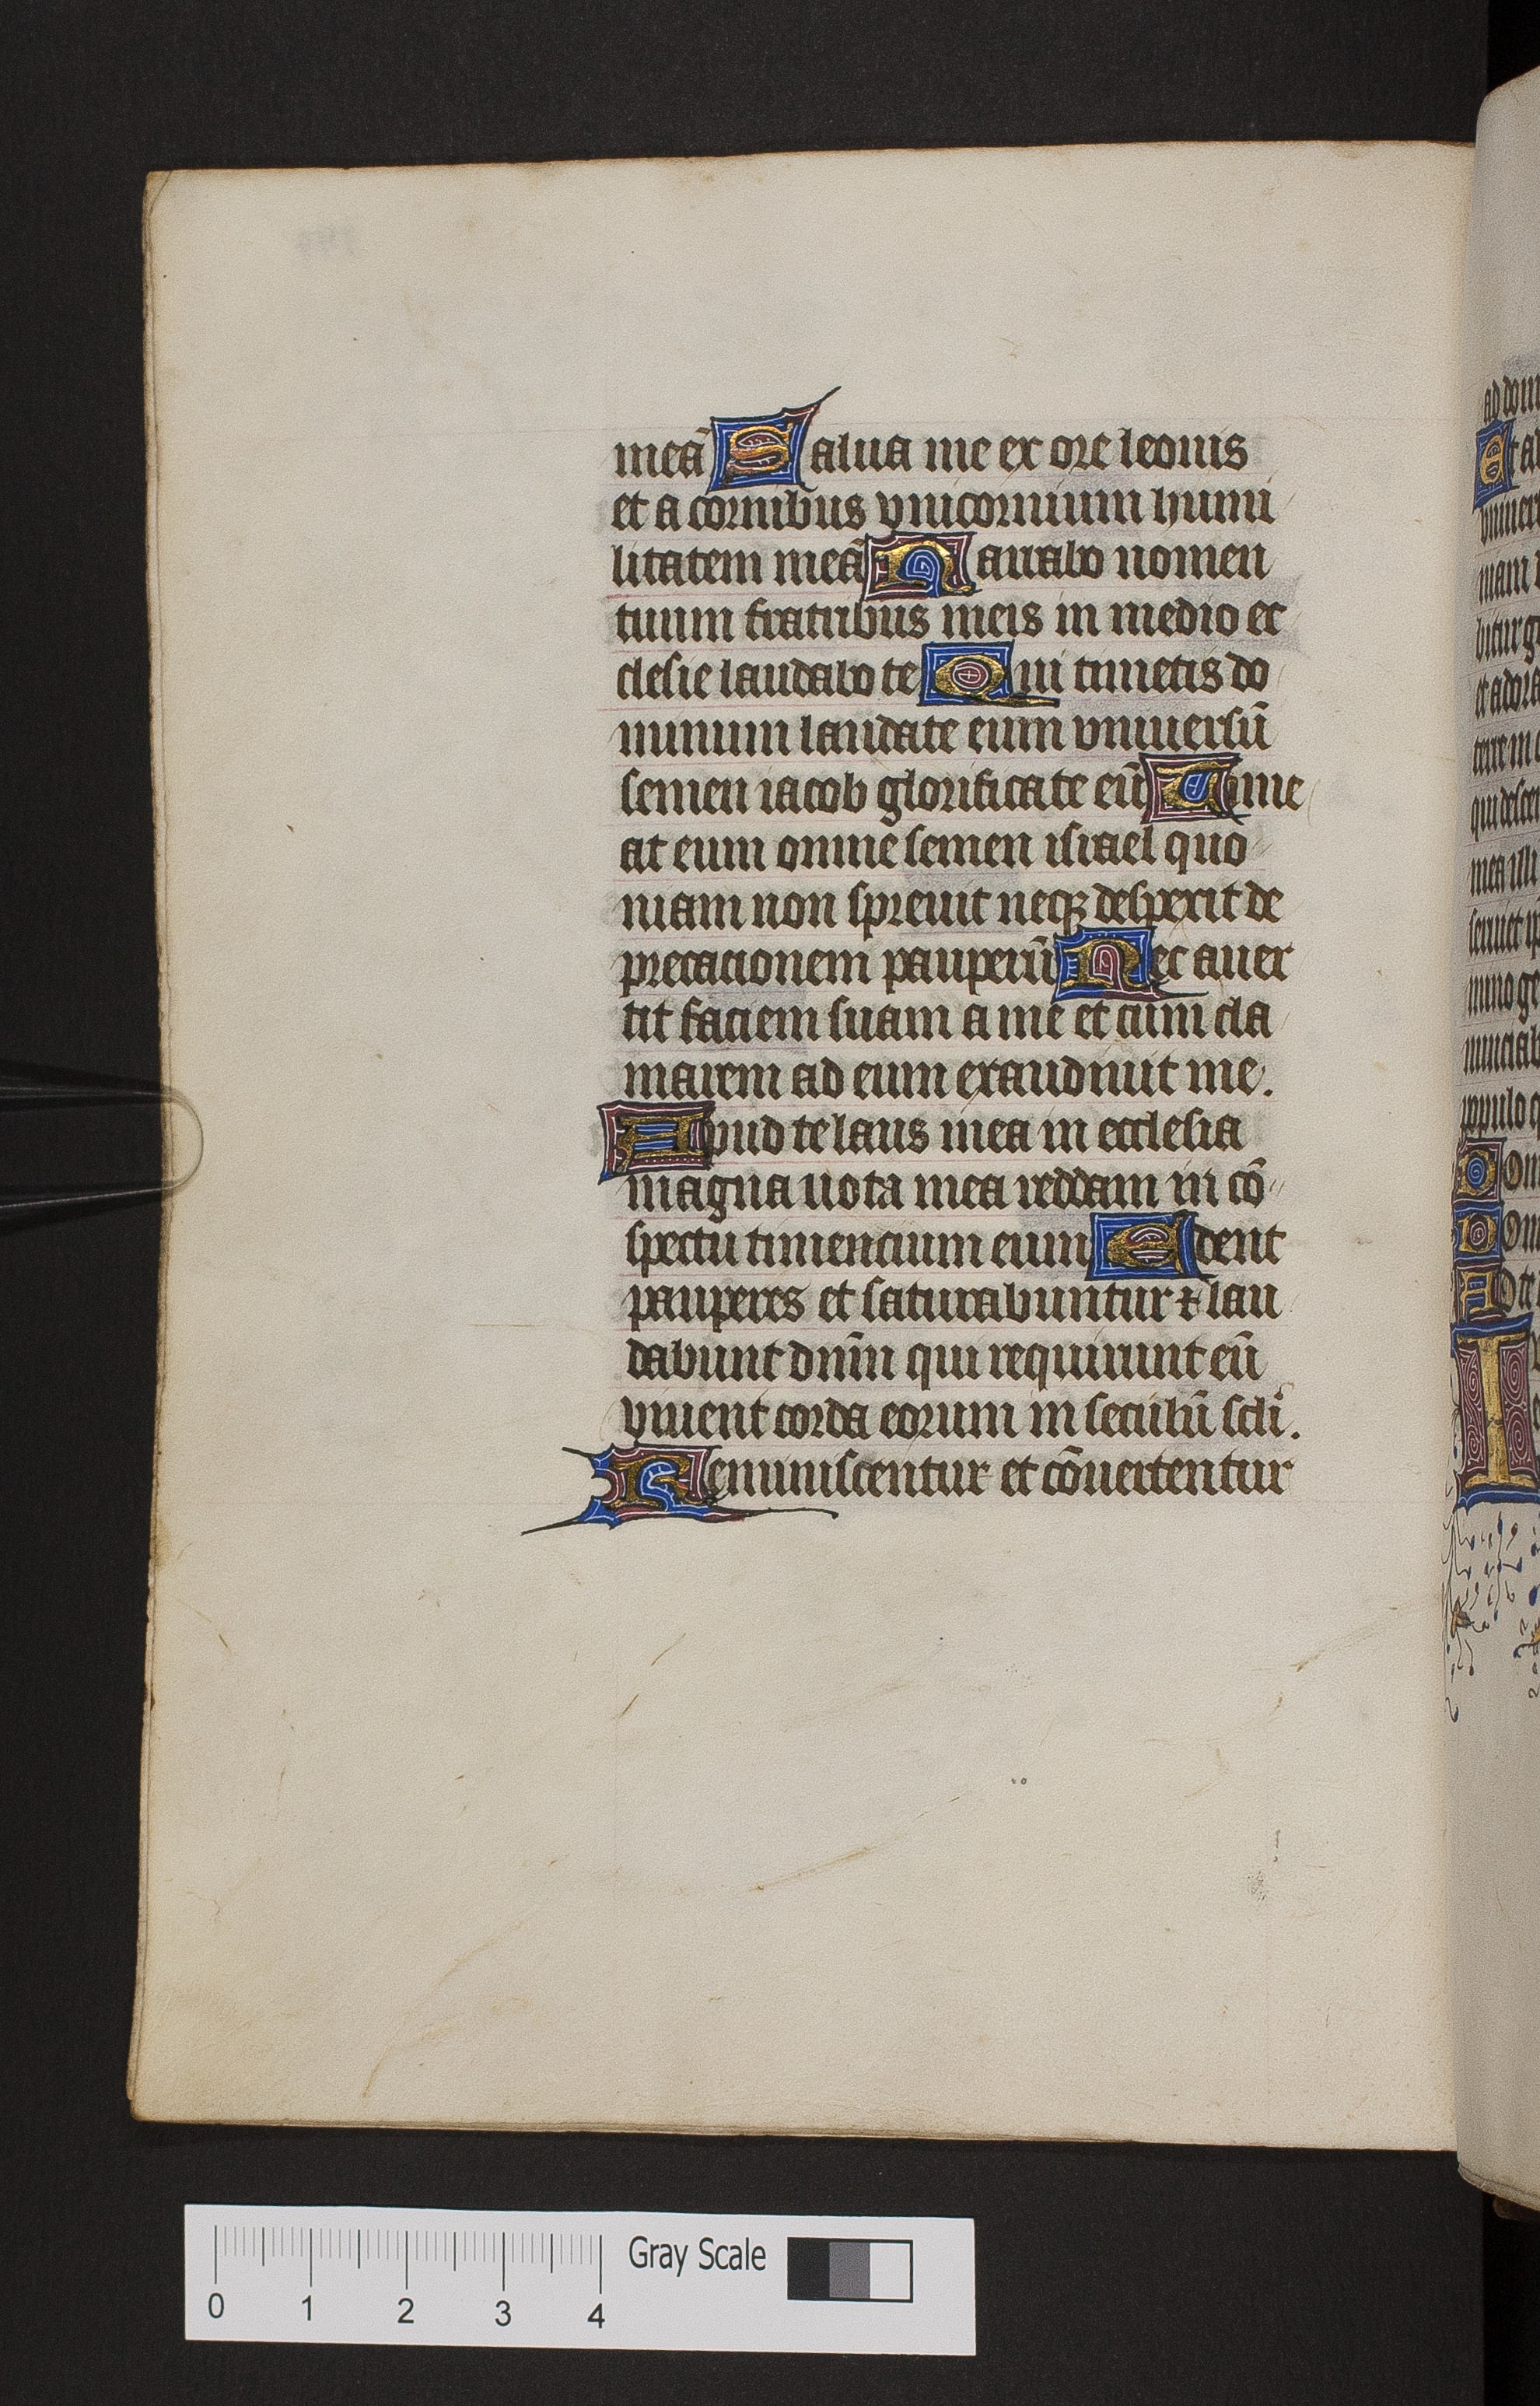 meã Salua me ex ore leonis
et a cornibus vnicornium humi
litatem meã Narrabo nomen
tuum fratribus meis in medio ec
clesie laudabo te Qui timetis do
minum laudate eum vniuersũ
semen iacob glorificate eũ Time
at eum omne semen israel quo
niam non spreuit neqꝫ despexit de
precacionem pauperũ Nec auer
tit faciem suam a me et cum cla
marem ad eum exaudiuit me.
Apud te laus mea in ecclesia
magna uota mea reddam in cõ
spectu timencium eum Edent
pauperes et saturabuntur ⁊ lau
dabunt dnĩm qui requirunt eũ
viuent corda eorum in seculũ scli.
Reminiscentur et cõuertentur
Gray Scale
0 1 2 3 4